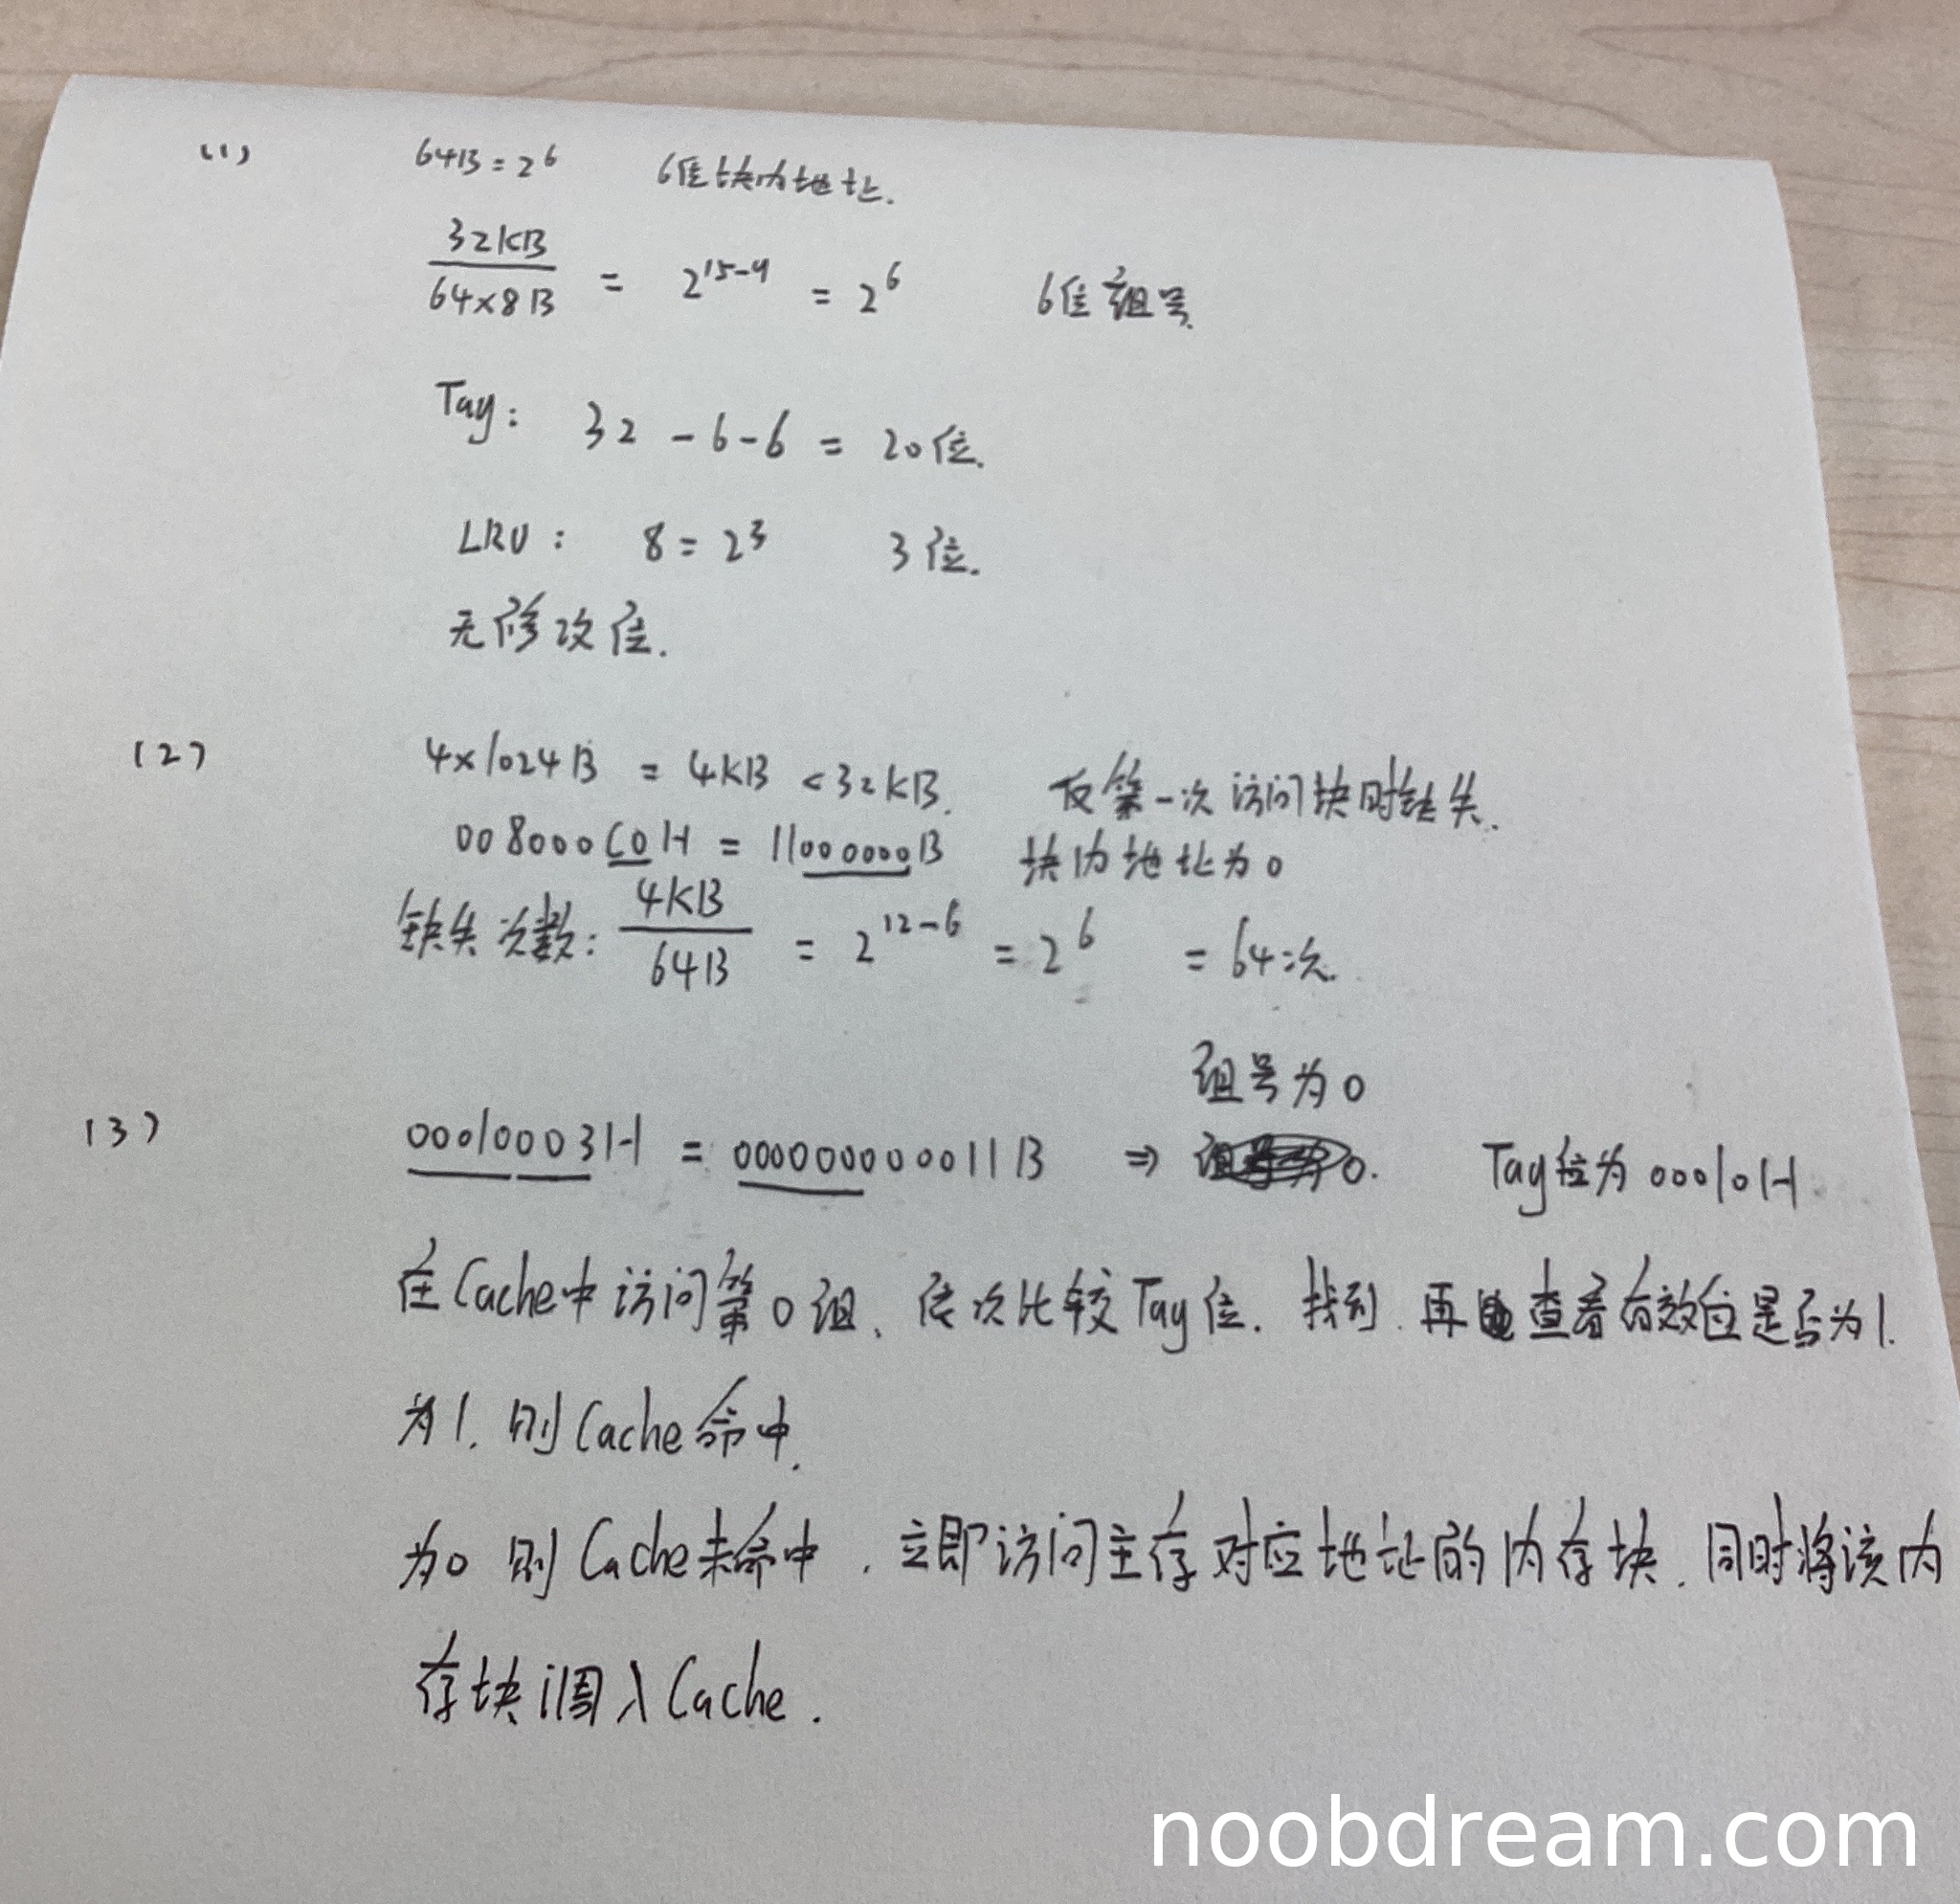 (1) 64B = 2^6 6位块内地址.
32KB / 64×8B = 2^15-9 = 2^6 6位组号.
Tag: 32 - 6 - 6 = 20位.
LRU: 8 = 2^3 3位.
无修改位.
(2) 4×1024B = 4KB < 32KB. 仅第一次访问块时缺失.
008000C0H = 11000000B 块内地址为0
缺失次数: 4KB / 64B = 2^12-6 = 2^6 = 64次.
组号为0
(3) 00010003H = 000000000011B ⇒ 0. Tag位为00010H
在Cache中访问第0组、依次比较Tag位. 找到. 再查看有效位是否为1.
为1. 则Cache命中.
为0 则Cache未命中. 立即访问主存对应地址的内存块. 同时将该内
存块调入Cache.
noobdream.com